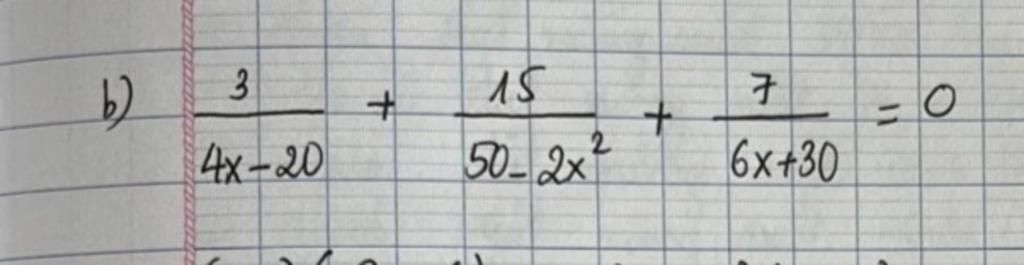 b) 3/(4x-20) + 15/(50-2x²) + 7/(6x+30) = 0